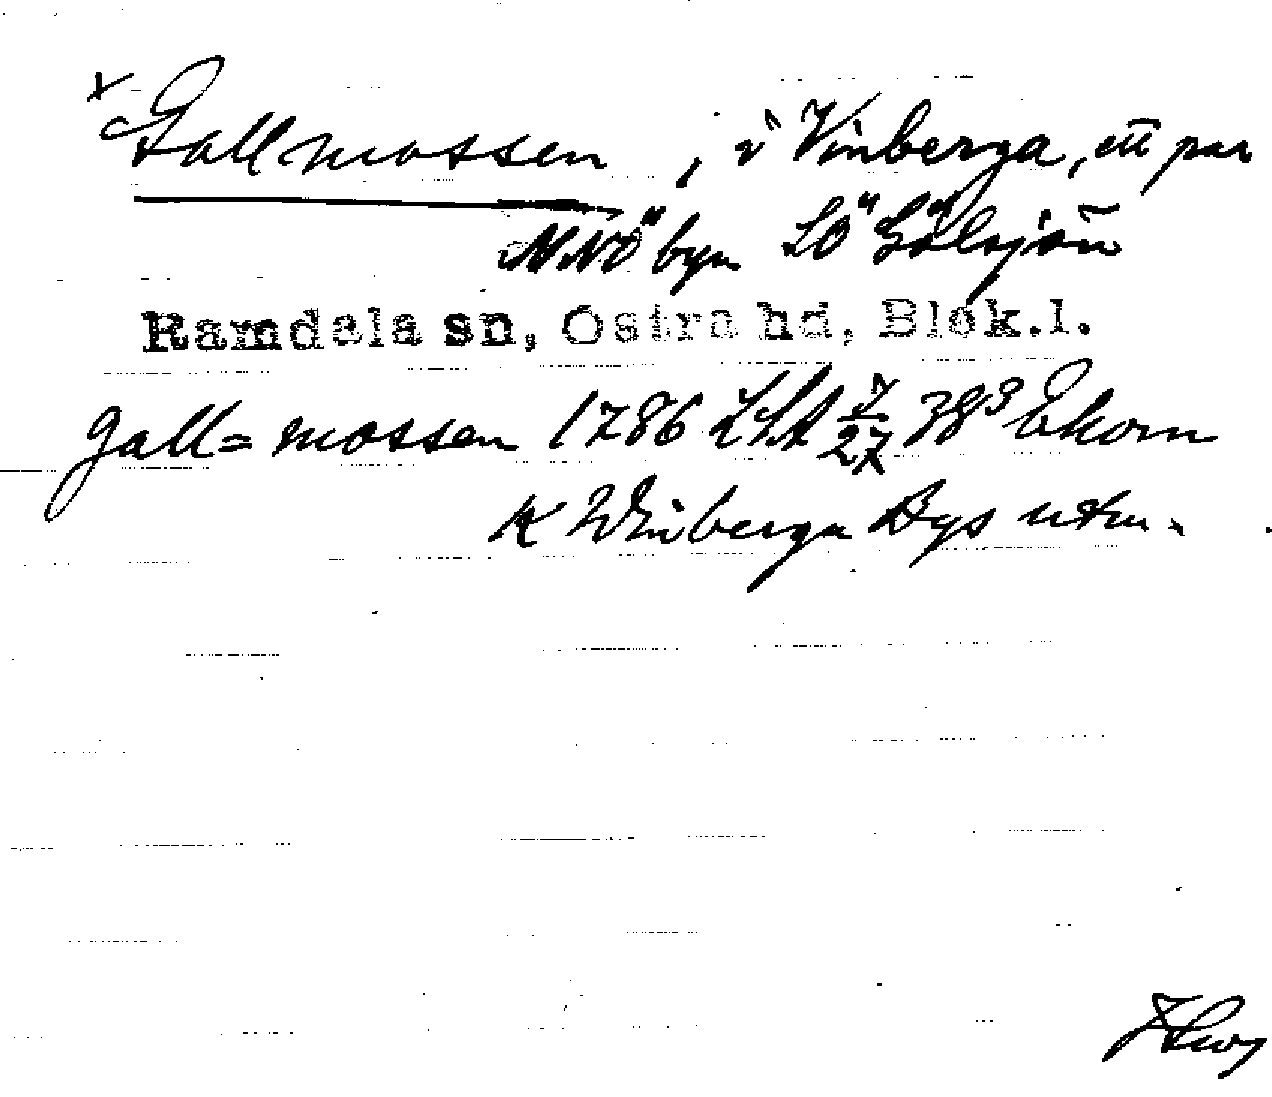 x Gallmossen, i Vinberga, ett par
NNÖ byn SÖ Gölsjön
Ramdala sn, Östra hd, Blek.l.
gall= mossen 1786 LSA 38³ Ekorn
K Winberga Bys utm.